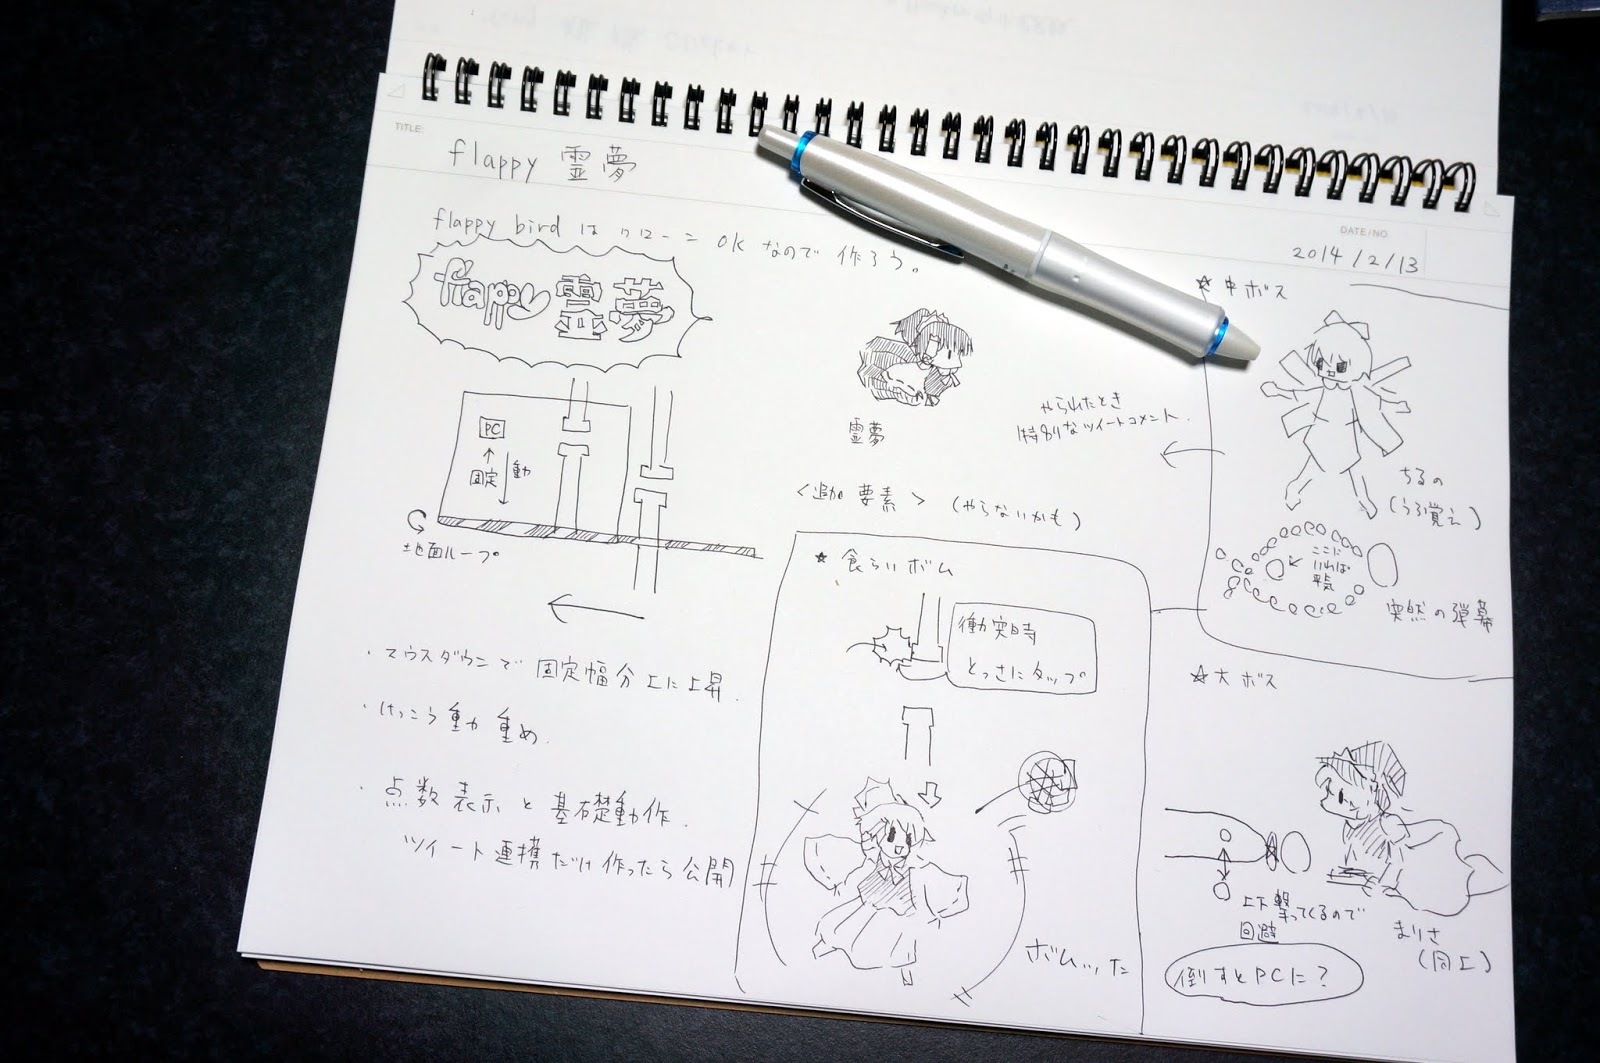 TITLE:
flappy 霊夢
DATE/NO.
2014/2/13
flappy bird は クローン OK なので 作ろう。
flappy 霊夢
PC
固定
動
地面ループ
・マウスダウンで 固定幅分上に上昇.
・けっこう重力重め.
・点数表示と基礎動作.
ツイート連携だけ作ったら公開
霊夢
やられたとき
特別なツイートコメント.
<追加要素> (やらないかも)
☆食らいボム
衝突時
とっさにタップ
ボムッた
☆中ボス
ちるの
(うろ覚え)
ここに
いれば
平気
突然の弾幕
☆大ボス
上下撃ってくるので
回避
まりさ
(同上)
倒すとPCに?